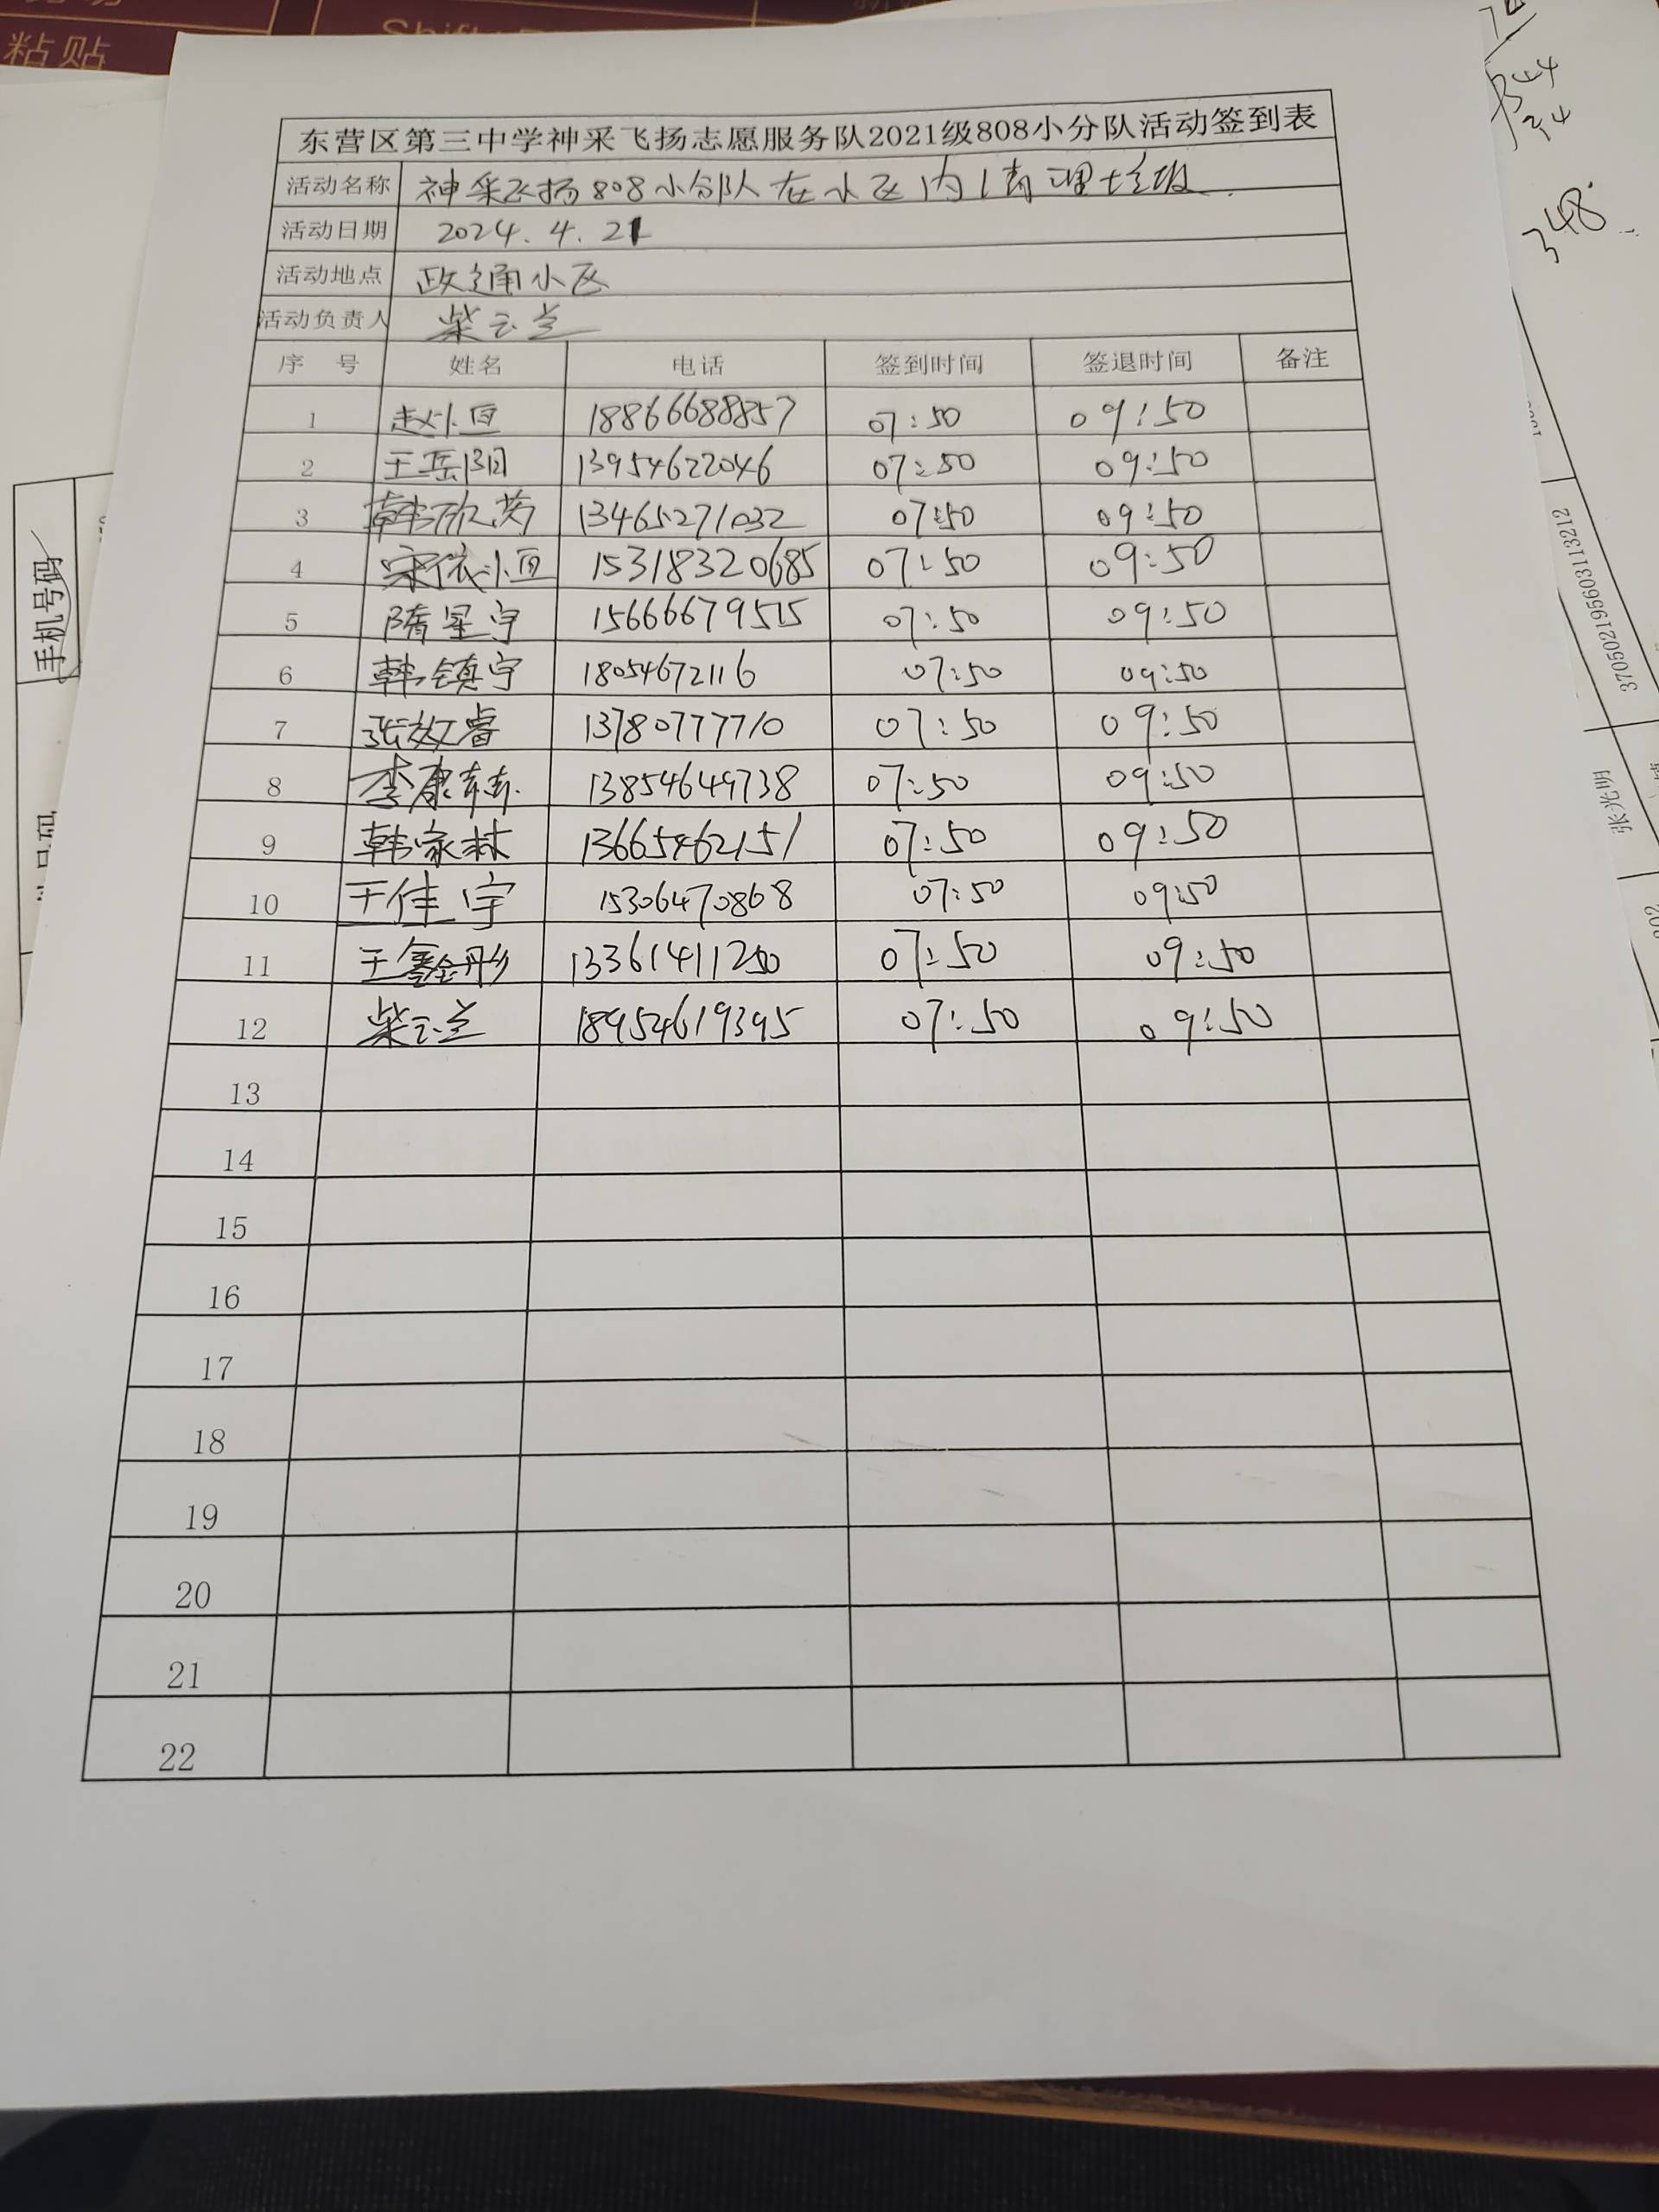 粘贴
东营区第三中学神采飞扬志愿服务队2021级808小分队活动签到表
活动名称 神采飞扬808小分队在小区内清理垃圾.
活动日期 2024.4.21
活动地点 政通小区
活动负责人 柴云兰
序 号 姓名 电话 签到时间 签退时间 备注
1 赵恒 18866688857 07:50 09:50
2 王玉阳 13954622046 07:50 09:50
3 韩欣芮 13465271032 07:50 09:50
4 宋依恒 15318320685 07:50 09:50
5 隋星宇 15666679515 07:50 09:50
6 韩镇宇 18054672116 07:50 09:50
7 张效睿 13780777710 07:50 09:50
8 李康 13854649738 07:50 09:50
9 韩家林 13665462151 07:50 09:50
10 王佳宇 15306470868 07:50 09:50
11 王鑫彤 13361411250 07:50 09:50
12 柴云兰 18954619395 07:50 09:50
13
14
15
16
17
18
19
20
21
22
手机号码
348
370502195603113212
张光明